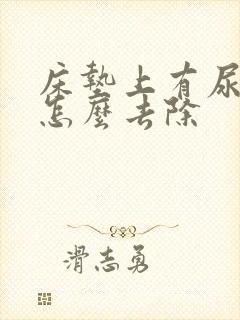 床墊上有尿
怎麼去除
滑志勇